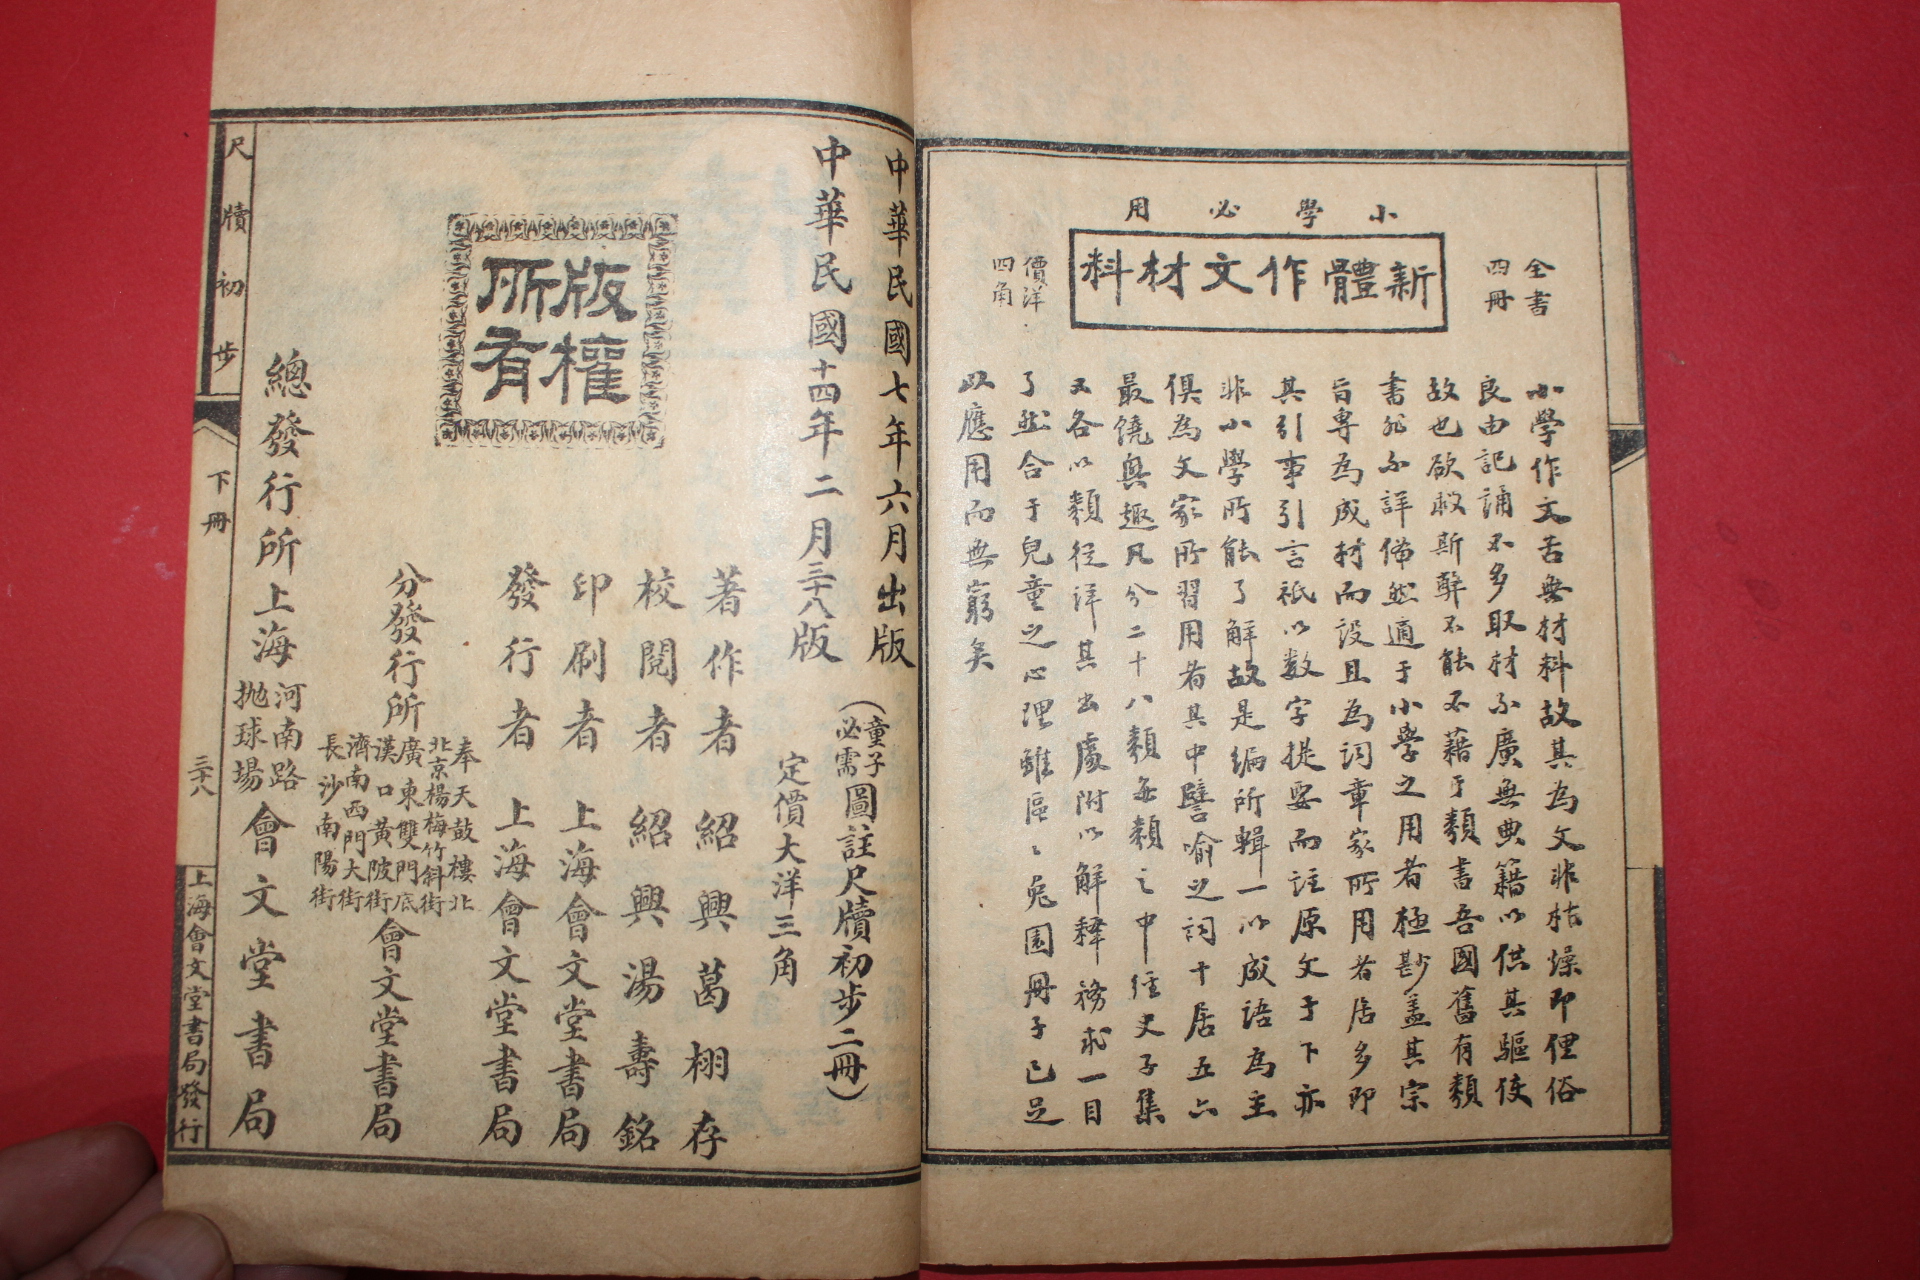 小學必用
全書
四冊
新體作文材料
價洋
四角
小學作文苦無材料故其為文非枯燥即俚俗
良由記誦不多取材不廣無典籍以供其驅使
故也欲救斯弊不能不藉于類書吾國舊有類
書非不詳備然適于小學之用者極尠盖其宗
旨專為成材而設且為詞章家所用者居多即
其引事引言祇以数字提要而註原文于下亦
非小學所能了解故是編所輯一以成語為主
俱為文家所習用者其中譬喻之詞十居五六
最饒興趣凡分二十八類每類之中經史子集
又各以類從詳其出處附以解釋務求一目
了然合于兒童之心理雖區〻兔園冊子已足
以應用而無窮矣
中華民國七年六月出版
中華民國十四年二月三十八版
(童子必需圖註尺牘初步二冊)
定價大洋三角
著作者 紹興葛栩存
校閱者 紹興湯壽銘
印刷者 上海會文堂書局
發行者 上海會文堂書局
版權所有
分發行所
奉天鼓樓北
北京楊梅竹斜街
廣東雙門底
漢口黃陂街
濟南西門大街
長沙南陽街
會文堂書局
總發行所上海
河南路
拋球場
會文堂書局
尺牘初步
下冊
三十八
上海會文堂書局發行